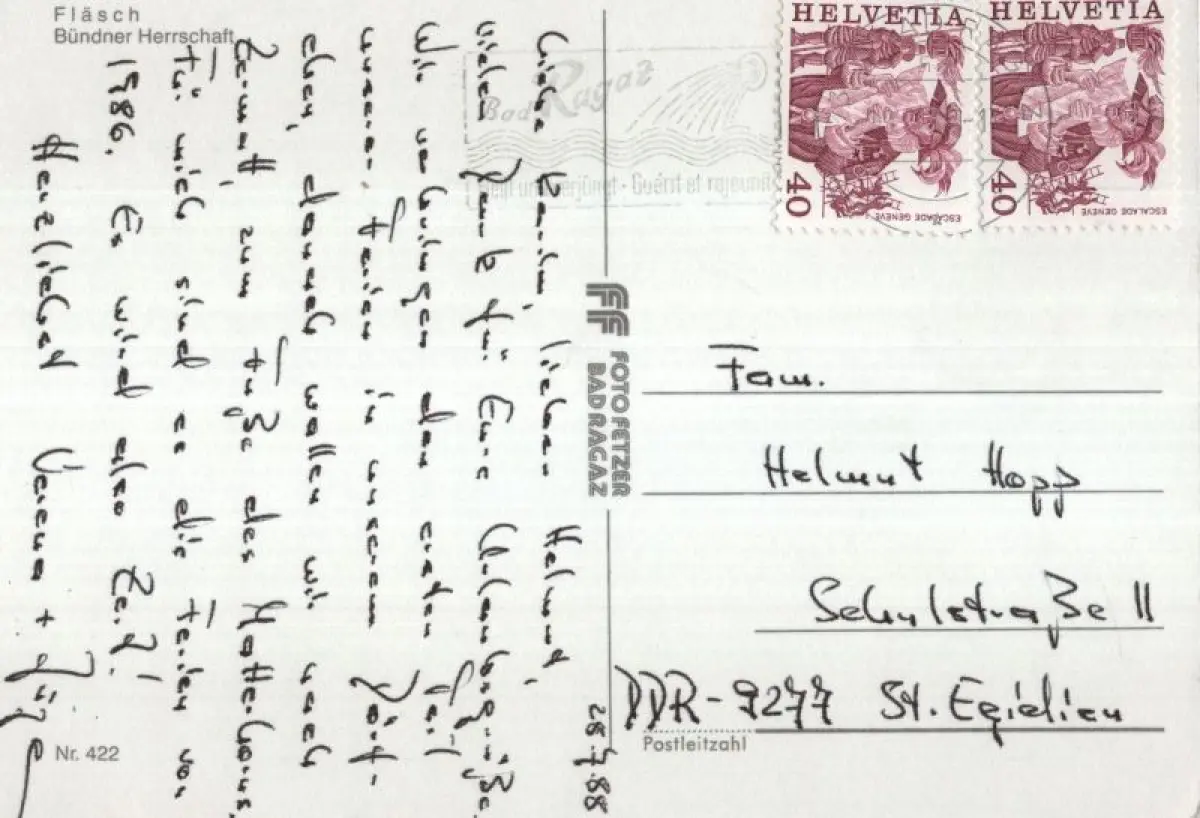 Fläsch
Bündner Herrschaft
28.7.88
Liebe Karin, lieber Helmut,
vielen Dank für Eure Urlaubsgrüße.
Wir verbringen den ersten Teil
unserer Ferien in unserem Dörf-
chen, danach wollen wir nach
Zermatt, zum Fuße des Matterhorns.
Für mich sind es die Ferien von
1986. Es wird also Zeit!
Herzlichst Verena +
Nr. 422
FF FOTO FETZER
BAD RAGAZ
Bad Ragaz
heilt und verjüngt · Guérit et rajeunit
HELVETIA
40
ESCALADE GENÈVE
HELVETIA
40
ESCALADE GENÈVE
Fam.
Helmut Hopp
Schulstraße 11
DDR-9277 St. Egidien
Postleitzahl